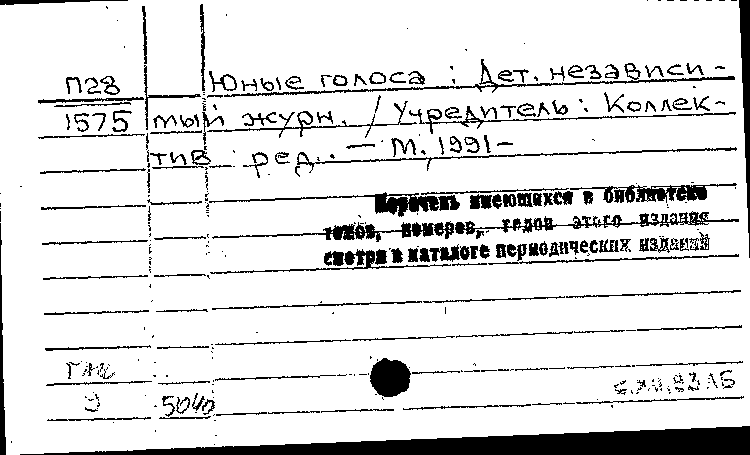 П28 Юные голоса : Дет. независи-
1575 мый журн. / Учредитель: Коллек-
тив ред. . — М., 1991 —
Перечень имеющихся в библиотеке
томов, номеров, годов этого издания
смотри в каталоге периодических изданий
5040